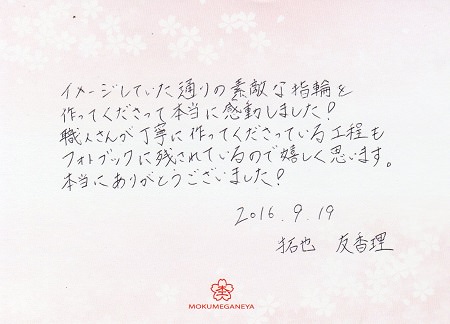 イメージしていた通りの素敵な指輪を
作ってくださって本当に感動しました!
職人さんが丁寧に作ってくださっている工程も
フォトブックに残されているので嬉しく思います。
本当にありがとうございました!
2016.9.19
拓也 友香理
MOKUMEGANEYA